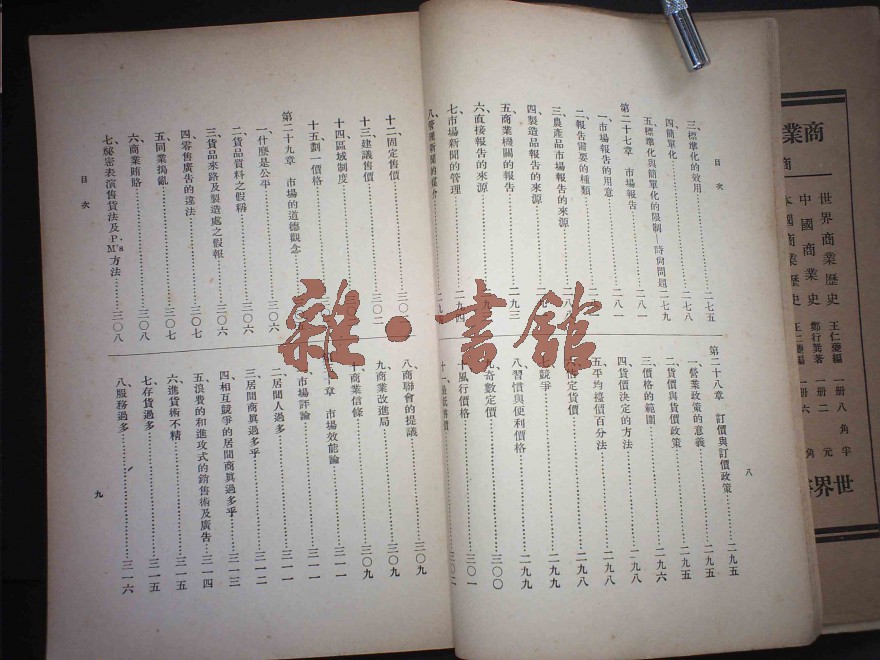 目次
三、標準化的效用……二七五
四、簡單化……二七八
五、標準化與簡單化的限制——時尙問題……二七九
第二十七章 市場報告……二八一
一、市場報告的用意……二八一
二、報告需要的種類
三、農產品市場報告的來源
四、製造品報告的來源
五、商業機關的報告……二九三
六、直接報告的來源
七、市場新聞的管理……二九四
八、營業新聞的媒介
第二十八章 訂價與訂價政策……二九五
一、營業政策的意義……二九五
二、貨價與貨價政策……二九五
三、價格的範圍……二九六
四、貨價決定的方法……二九八
五、平均攙價百分法……二九八
定貨價……二九八
競爭……二九九
八、習慣與便利價格……二九九
九、奇數定價……三〇〇
十、風行價格……三〇一
三〇二
八
十二、固定售價……三〇
十三、建議售價……三〇二
十四、區域制度
十五、劃一價格
第二十九章 市場的道德觀念
一、什麼是公平……三〇六
二、貨品質料之假稱……三〇六
三、貨品來路及製造處之假報……三〇六
四、零售廣告的違法……三〇七
五、同業搗亂……三〇七
六、商業賄賂……三〇八
七、秘密表演售貨法及P. M's方法……三〇八
目次
八、商聯會的提議……三〇九
九、商業改進局……三〇九
十、商業信條……三〇九
十章 市場效能論……三一一
市場評論……三一一
二、居間人過多……三一一
三、居間商眞過多乎……三一二
四、相互競爭的居間商眞過多乎……三一三
五、浪費的和進攻式的銷售術及廣告……三一四
六、進貨術不精……三一五
七、存貨過多……三一五
八、服務過多……三一六
九
商業
商
世界商業歷史 王仁夔編 一册 八角半
中國商業史 鄭行巽著 一册 二元
本國商業歷史 王仁夔編 一册 六角
世界
雜·書館